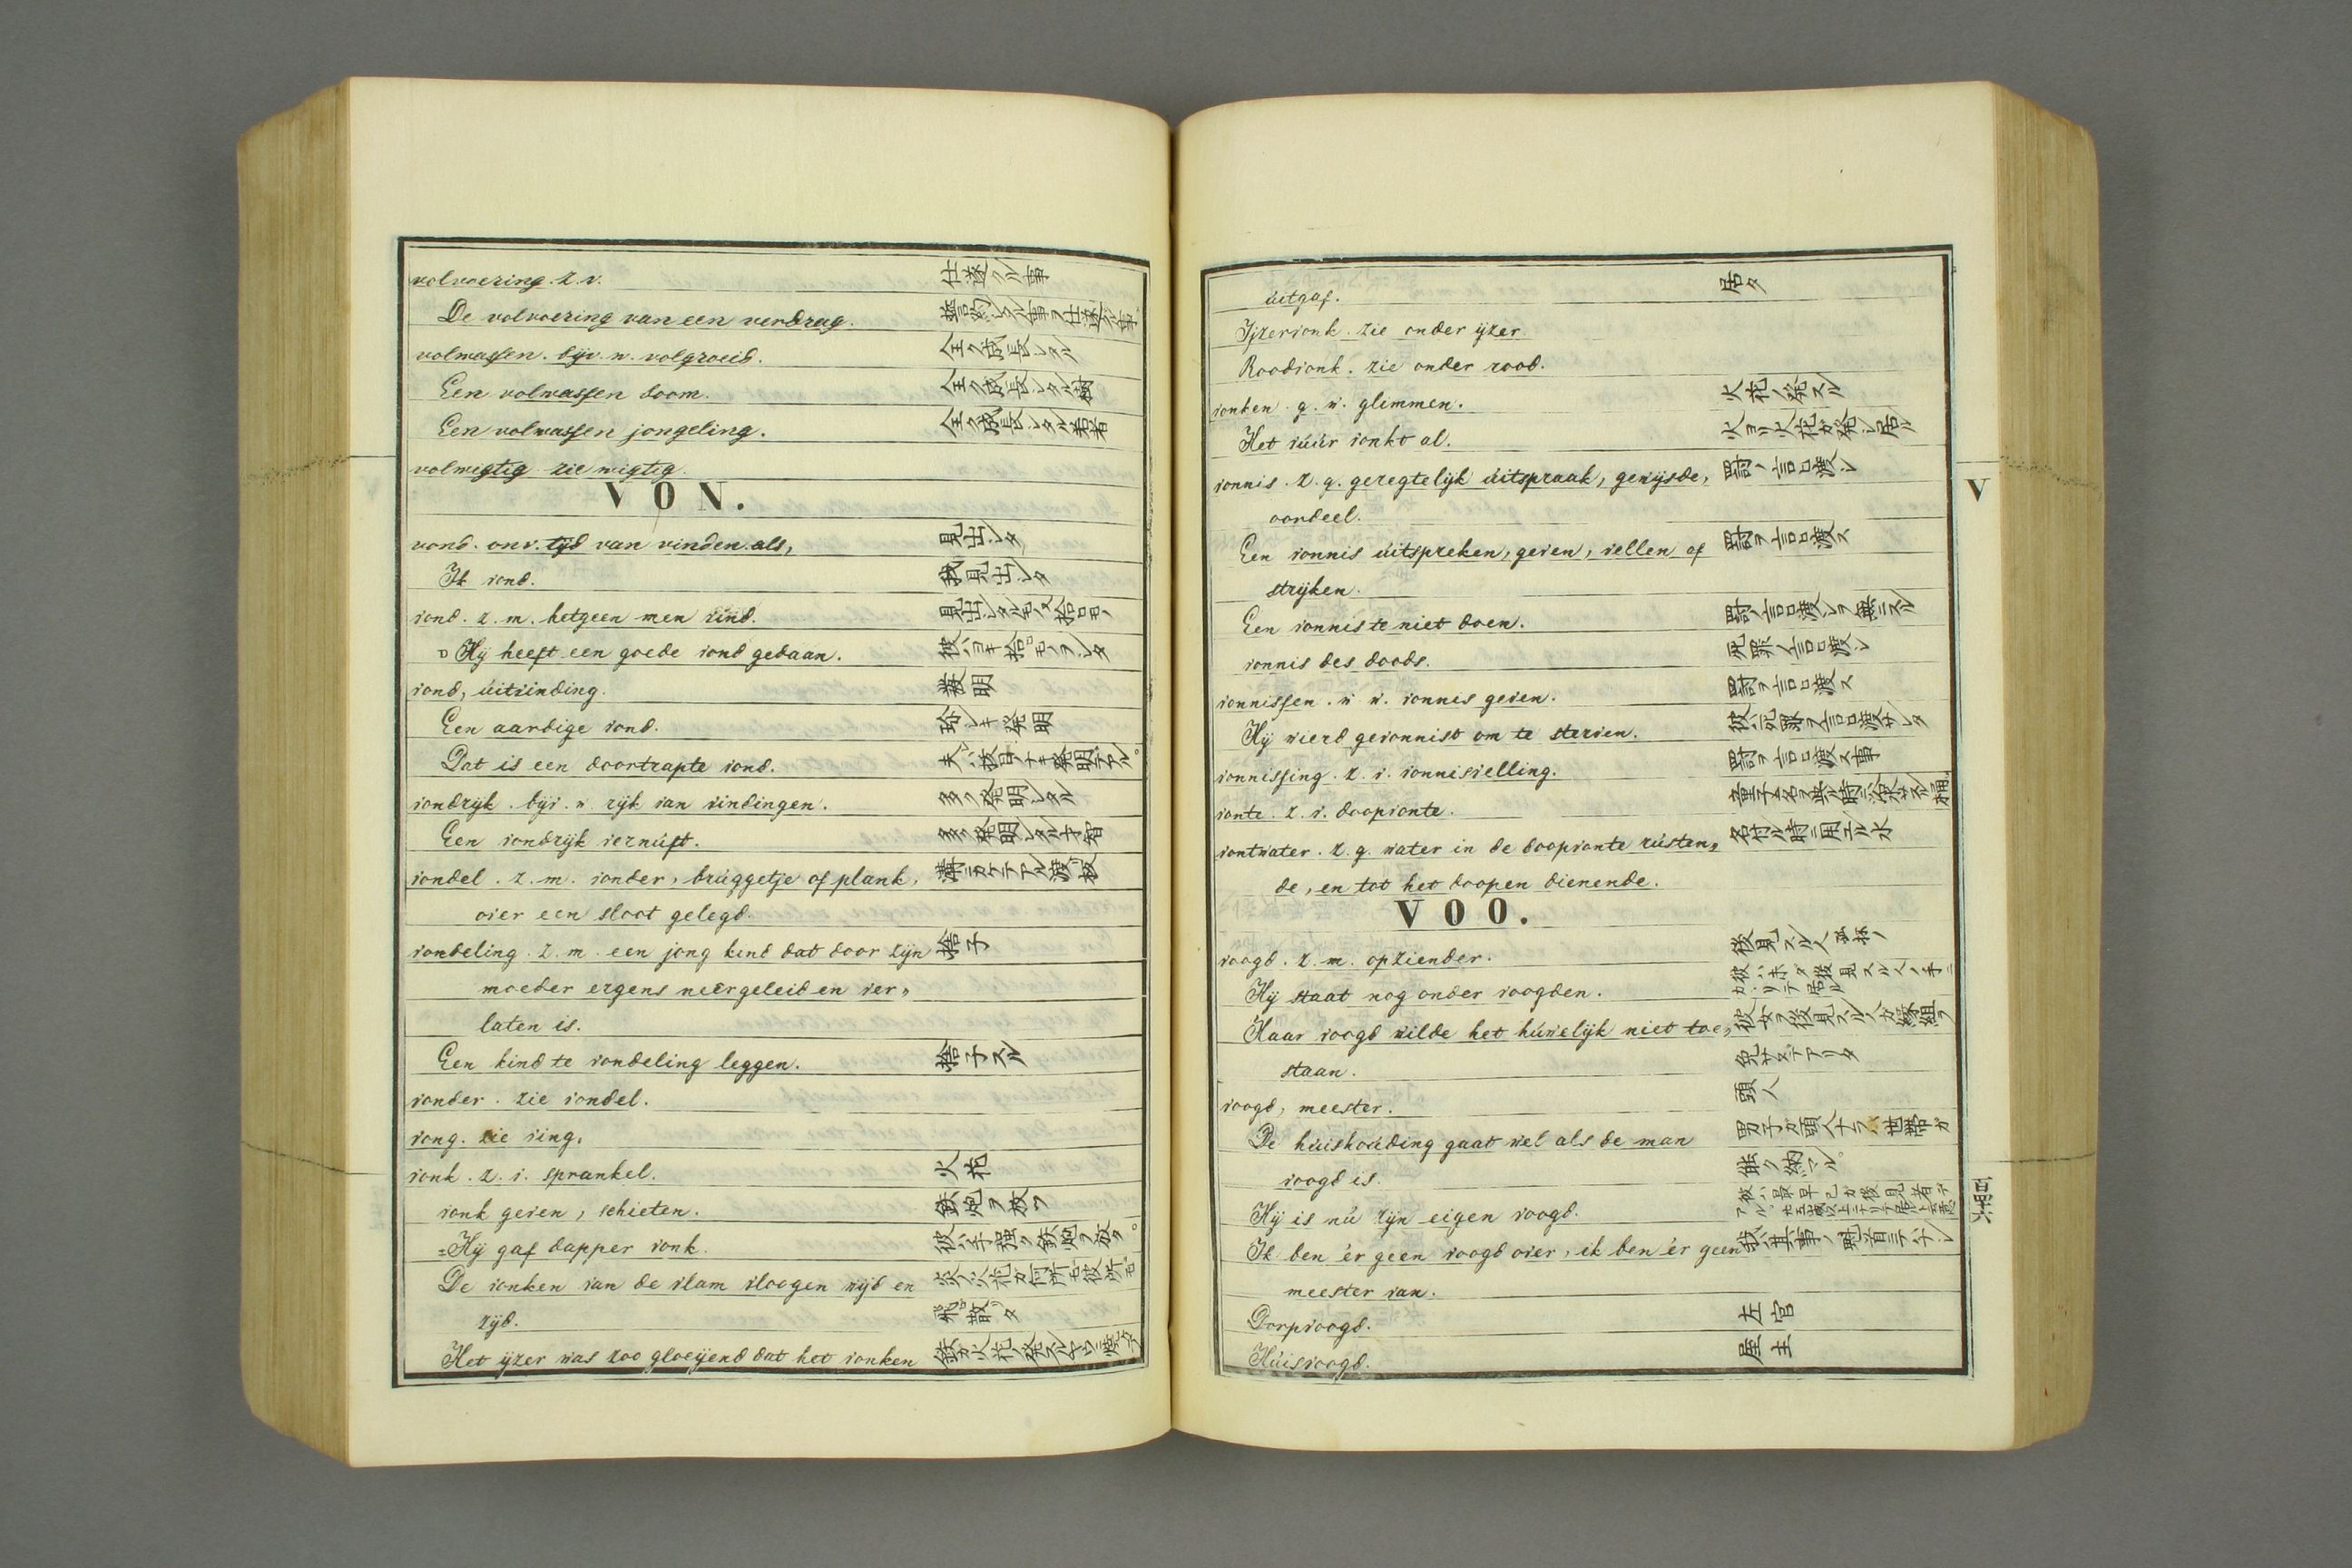 volvoering. z. v. 仕遂ル事
De volvoering van een verdrag.
volwassen. bijv. n. volgroeid. 全ク成長シタル
Een volwassen boom. 全ク成長シタル樹
Een volwassen jongeling. 全ク成長シタル若者
volwigtig zie wigtig.
VON.
vond. onv. tijd van vinden. als, 見出シタ
Ik vond. 我見出シタ
vond. z. m. hetgeen men vind.
Hij heeft een goede vond gedaan.
vond, uitvinding. 發明
Een aardige vond. 珍シキ発明
Dat is een doortrapte vond.
vondrijk. bijv. n rijk van vindingen. 多ク発明シタル
Een vondrijk vernúft. 多ク発明シタル才智
vondel. z. m. vonder, brúggetje of plank,
over een sloot gelegd.
vondeling. z. m. een jong kind dat door zijn 捨子
moeder ergens neêrgeleid en ver„
laten is.
Een kind te vondeling leggen. 捨子スル
vonder. zie vondel.
vong. zie ving.
vonk. z. v. sprankel. 火花
vonk geven, schieten. 鉄炮ヲ放ツ
Hij gaf dapper vonk. 彼ハ手強ク鉄炮ヲ放タ。
De vonken van de vlam vloogen wijd en
zijd. 飛散ツタ
Het ijzer was zoo gloeijend dat het vonken
úitgaf. 居タ
Ijzervonk. zie onder ijzer
Roodvonk. zie onder rood.
vonken. g. w. glimmen. 火花ノ発スル
Het vúúr vonkt al. 火ヨリ火花ガ発シ居ル
vonnis. z. g. geregtelijk úitspraak, gewijsde, 罸ノ言口渡シ
oordeel.
Een vonnis úitspreken, geven, vellen of 罸ヲ言口渡ス
strijken.
Een vonnis te niet doen. 罸ノ言口渡シヲ無ニスル
vonnis des doods. 死罪ノ言口渡シ
vonnissen. w w. vonnis geven. 罸ヲ言口渡ス
Hij wierd gevonnist om te sterven. 彼ハ死罪ヲ言口渡サレタ
vonnissing. z. v. vonnisvelling. 罸ヲ言口渡ス事
vonte. z. v. doopvonte.
vontwater. z. g. water in de doopvonte rústen„ 名付ル時ニ用エル水
de, en tot het doopen dienende.
VOO.
voogd. z. m. opziender.
Hij staat nog onder voogden.
Haar voogd wilde het húwelijk niet toe„ 彼女ヲ後見スル人ガ縁組ヲ
staan.
voogd, meester. 頭人
De húishoúding gaat wel als de man 男子ガ頭人ナラバ世帯ガ
voogd is. 能ク納マル。
Hij is nú zijn eigen voogd.
Ik ben ér geen voogd over, ik ben ér geen
meester van.
Dorpvoogd. 庄官
Húisvoogd. 屋主
V